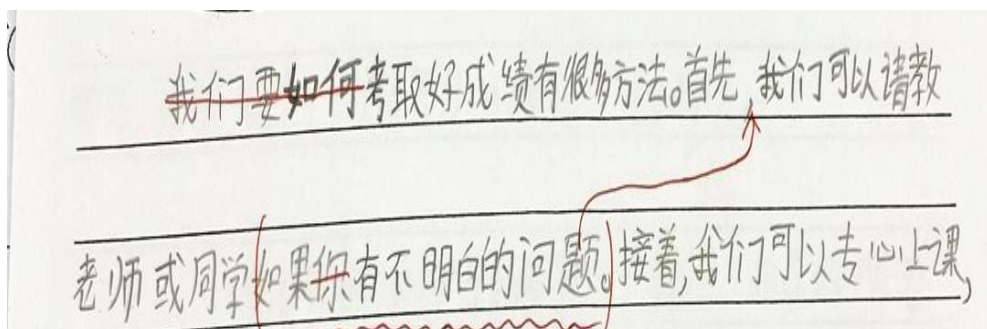 我们要如何考取好成绩有很多方法。首先,我们可以请教
老师或同学(如果你有不明白的问题。)接着,我们可以专心上课,